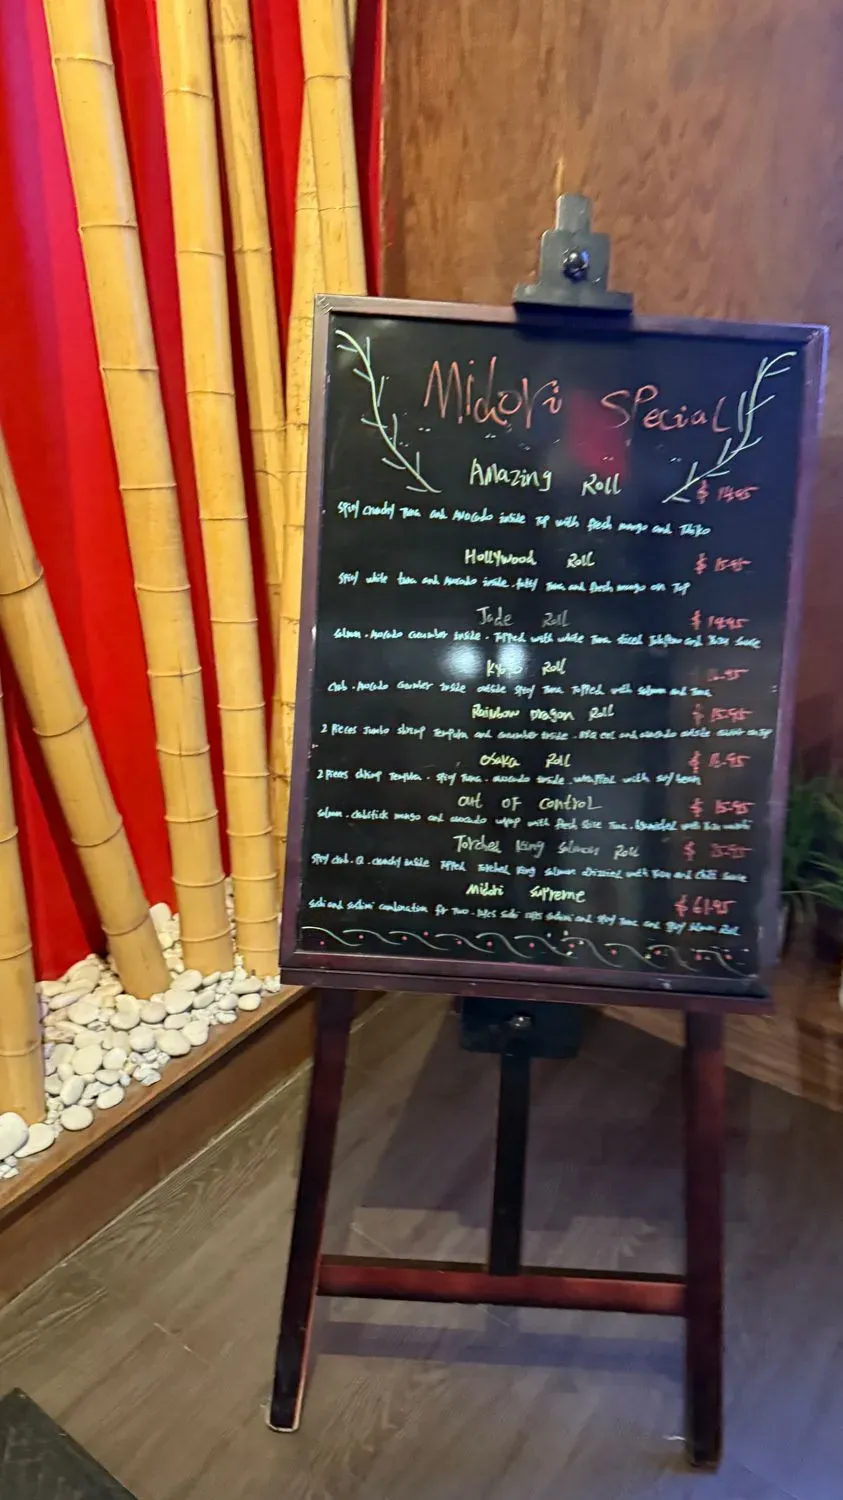 Midori Special
Amazing Roll $ 14.95
Spicy crunchy Tuna and Avocado inside Top with fresh mango and
Hollywood Roll $ 15.95
Spicy white tuna and Avocado inside. Tuna and fresh mango on Top
Jade Roll $ 14.95
Salmon. Avocado cucumber inside. Topped with white Tuna sliced and Yuzu Sauce
Kyoto Roll
Crab. Avocado Cucumber inside outside spicy Tuna Topped with salmon and Tuna
Rainbow Dragon Roll $ 15.95
2 Pieces Jumbo shrimp Tempura and cucumber inside. BBQ eel and avocado outside on Top
Osaka Roll
2 Pieces shrimp Tempura. Spicy Tuna. avocado inside. wrapped with soy bean
Out OF Control $ 15.95
Salmon. mango and avocado wrap with fresh Tuna. with Yuzu
Torched King Salmon Roll
Spicy crab. crunchy inside Topped Torched King salmon drizzled with Yuzu and chili Sauce
Midori Supreme $ 61.95
Sushi and Sashimi combination for Two. Sushi Sashimi and Spicy Tuna and Roll